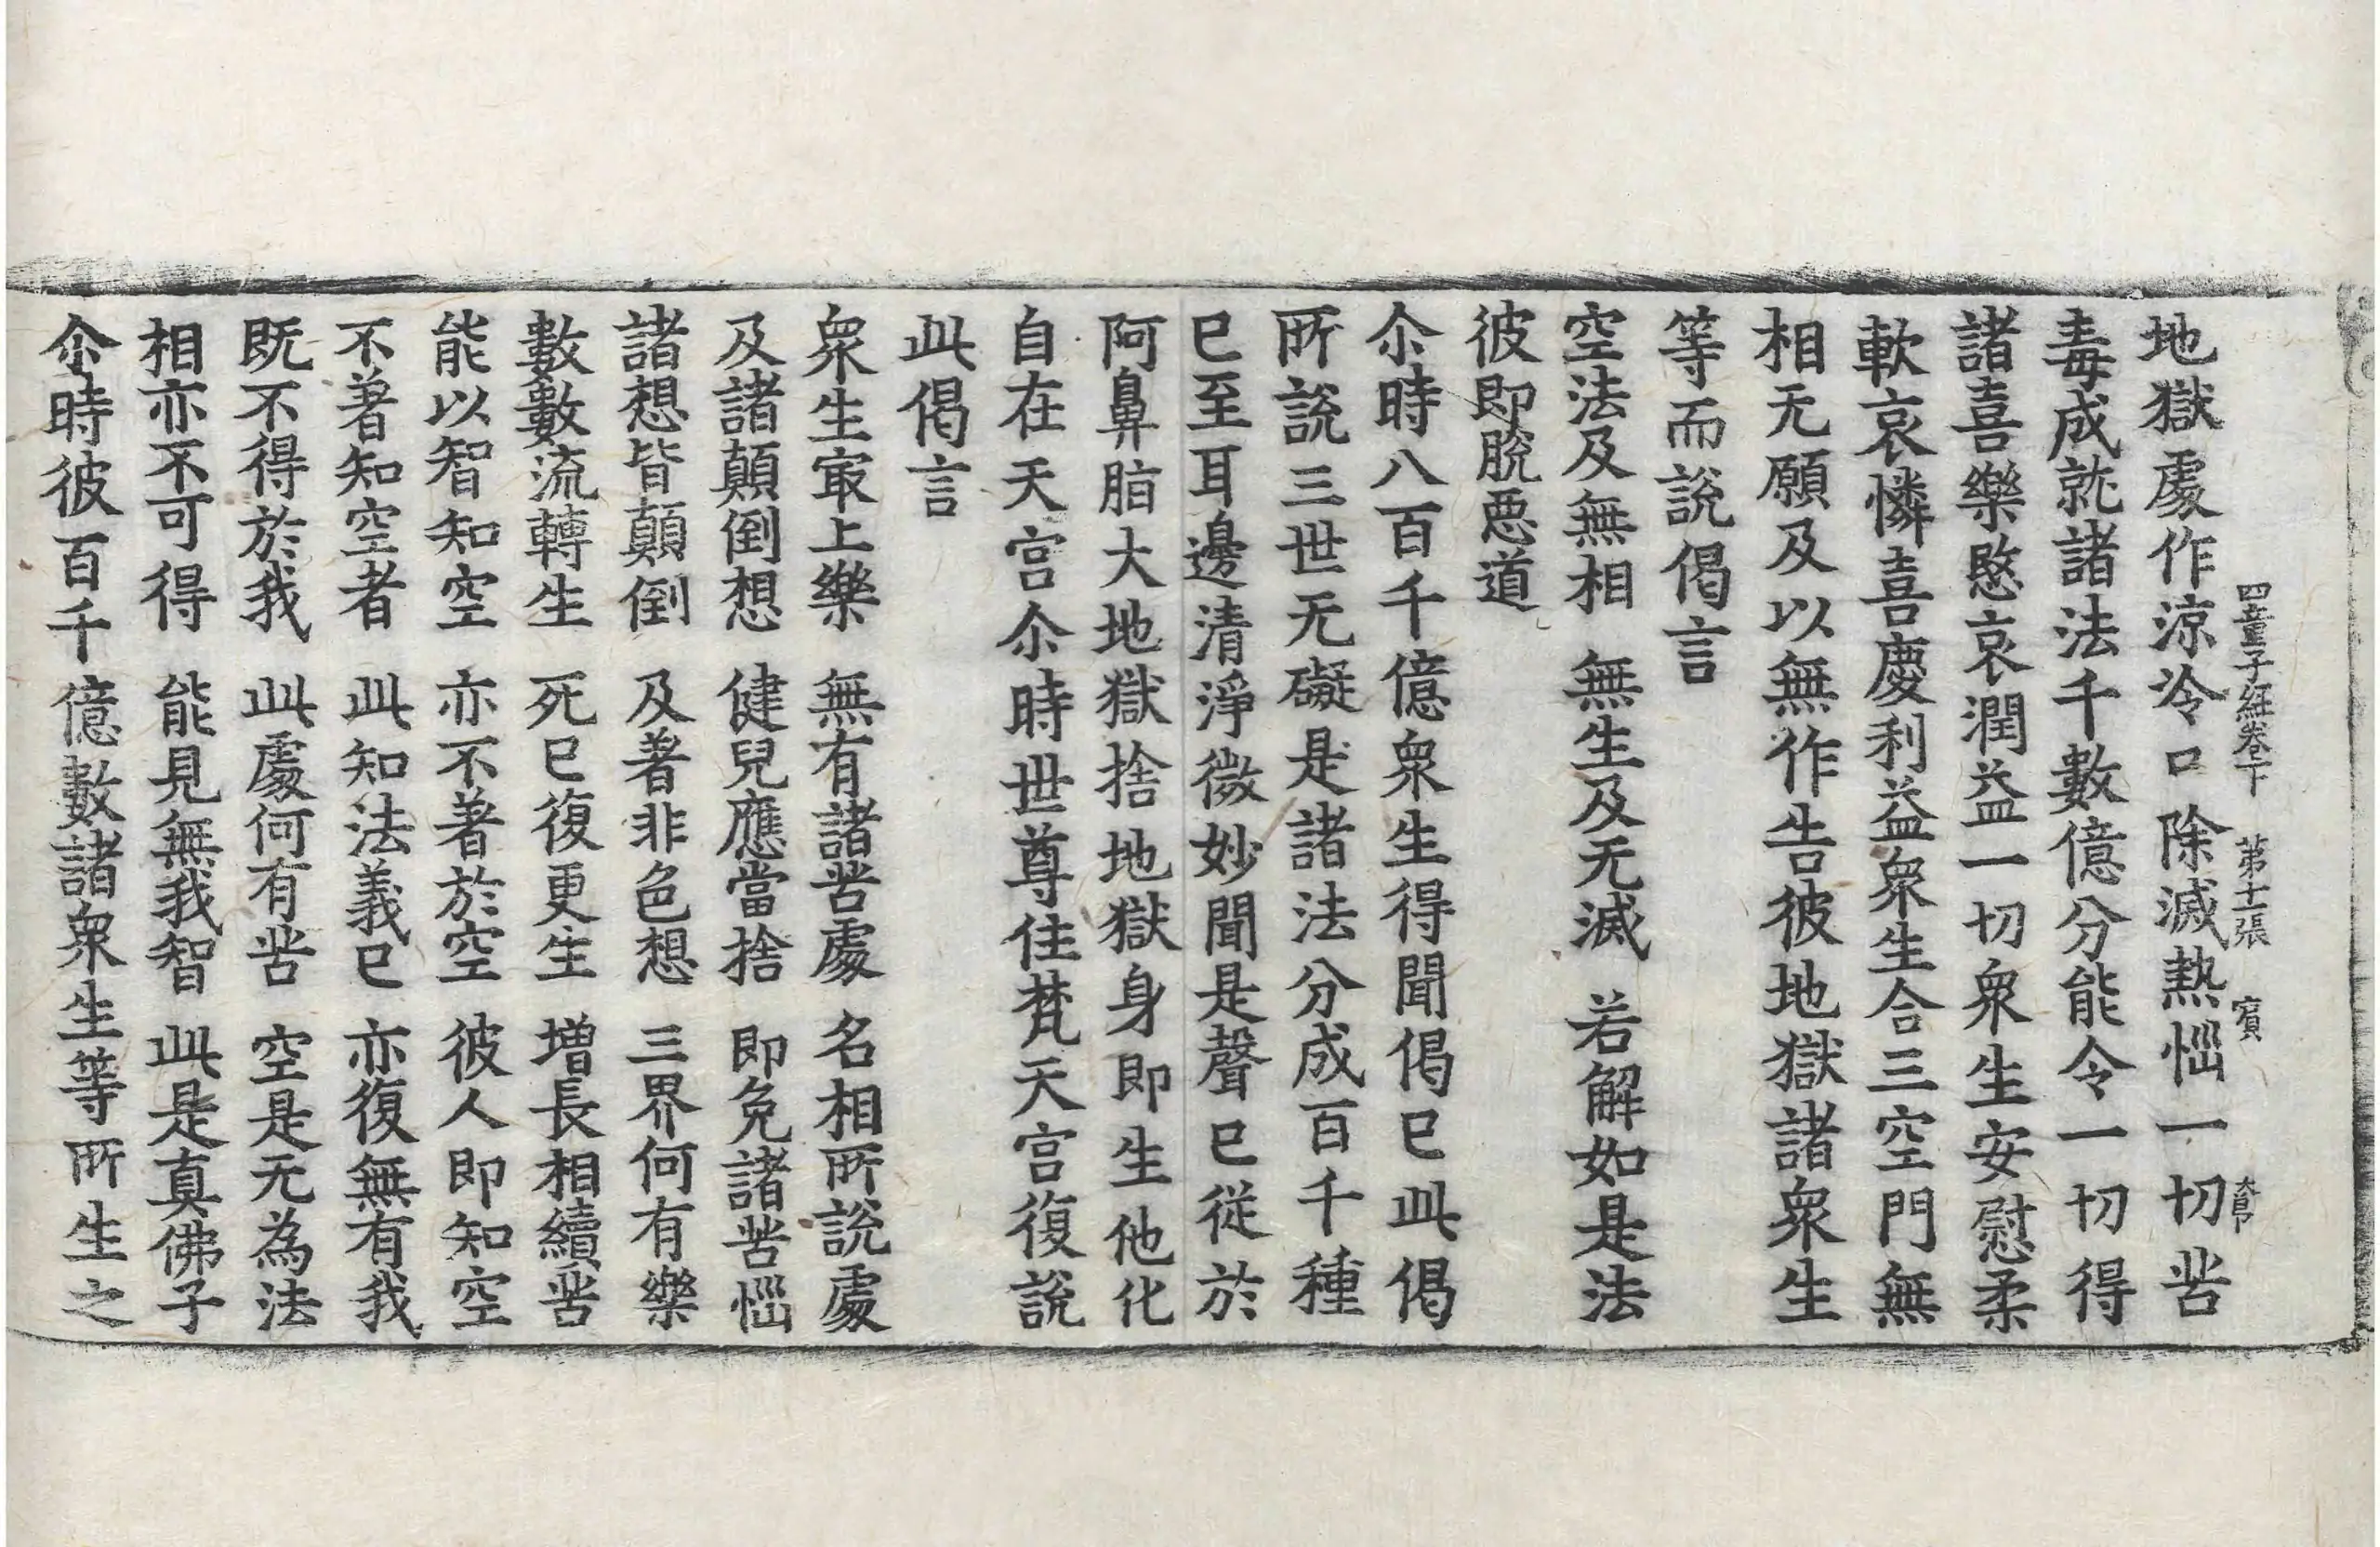 四童子經卷下 第十一張 賓
地獄處作涼冷口除滅熱惱一切苦
毒成就諸法千數億分能令一切得
諸喜樂愍哀潤益一切衆生安慰柔
軟哀憐喜慶利益衆生合三空門無
相无願及以無作告彼地獄諸衆生
等而說偈言
空法及無相 無生及无滅 若解如是法
彼即脫惡道
尒時八百千億衆生得聞偈已此偈
所說三世无礙是諸法分成百千種
已至耳邊清淨微妙聞是聲已從於
阿鼻脂大地獄捨地獄身即生他化
自在天宮尒時世尊住梵天宮復說
此偈言
衆生㝡上樂 無有諸苦處 名相所說處
及諸顛倒想 健兒應當捨 即免諸苦惱
諸想皆顛倒 及著非色想 三界何有樂
數數流轉生 死已復更生 增長相續苦
能以智知空 亦不著於空 彼人即知空
不著知空者 此知法義已 亦復無有我
既不得於我 此處何有苦 空是无為法
相亦不可得 能見無我智 此是真佛子
尒時彼百千億數諸衆生等所生之